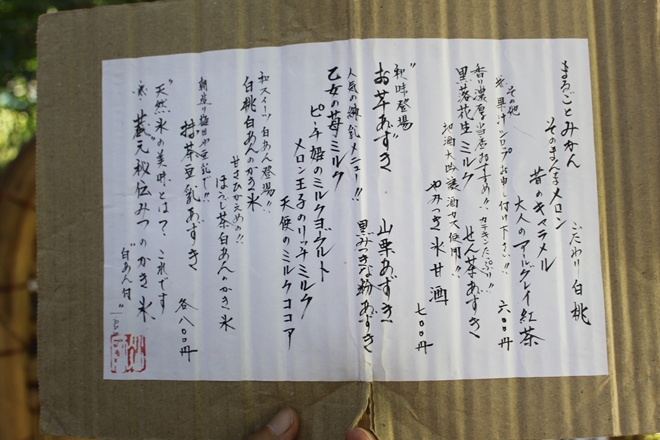 まるごとみかん
こだわり白桃
そのまんまメロン
昔のキャラメル
大人のアールグレイ紅茶
その他
果汁シロップお申し付け下さい!!
六〇〇円
香り濃厚当店おすすめ!! カテキンたっぷり!!
黒落花生ミルク
せん茶あずき
加酒大吟醸酒カス使用!!
やみつき氷甘酒
七〇〇円
"秋味登場"
お芋あずき
山栗あずき
黒みつきな粉あずき
人気の練乳メニュー!!
乙女の苺ミルク
ピーチ姫のミルクヨーグルト
メロン王子のリッチミルク
天使のミルクココア
和スイーツ白あん登場!!
白桃白あんのかき氷
甘さひかえめの!!
ほうじ茶白あんかき氷
抹茶豆乳あずき
各八〇〇円
"天然氷の美味とは? これです
蔵元秘伝みつのかき氷
"白あん付"